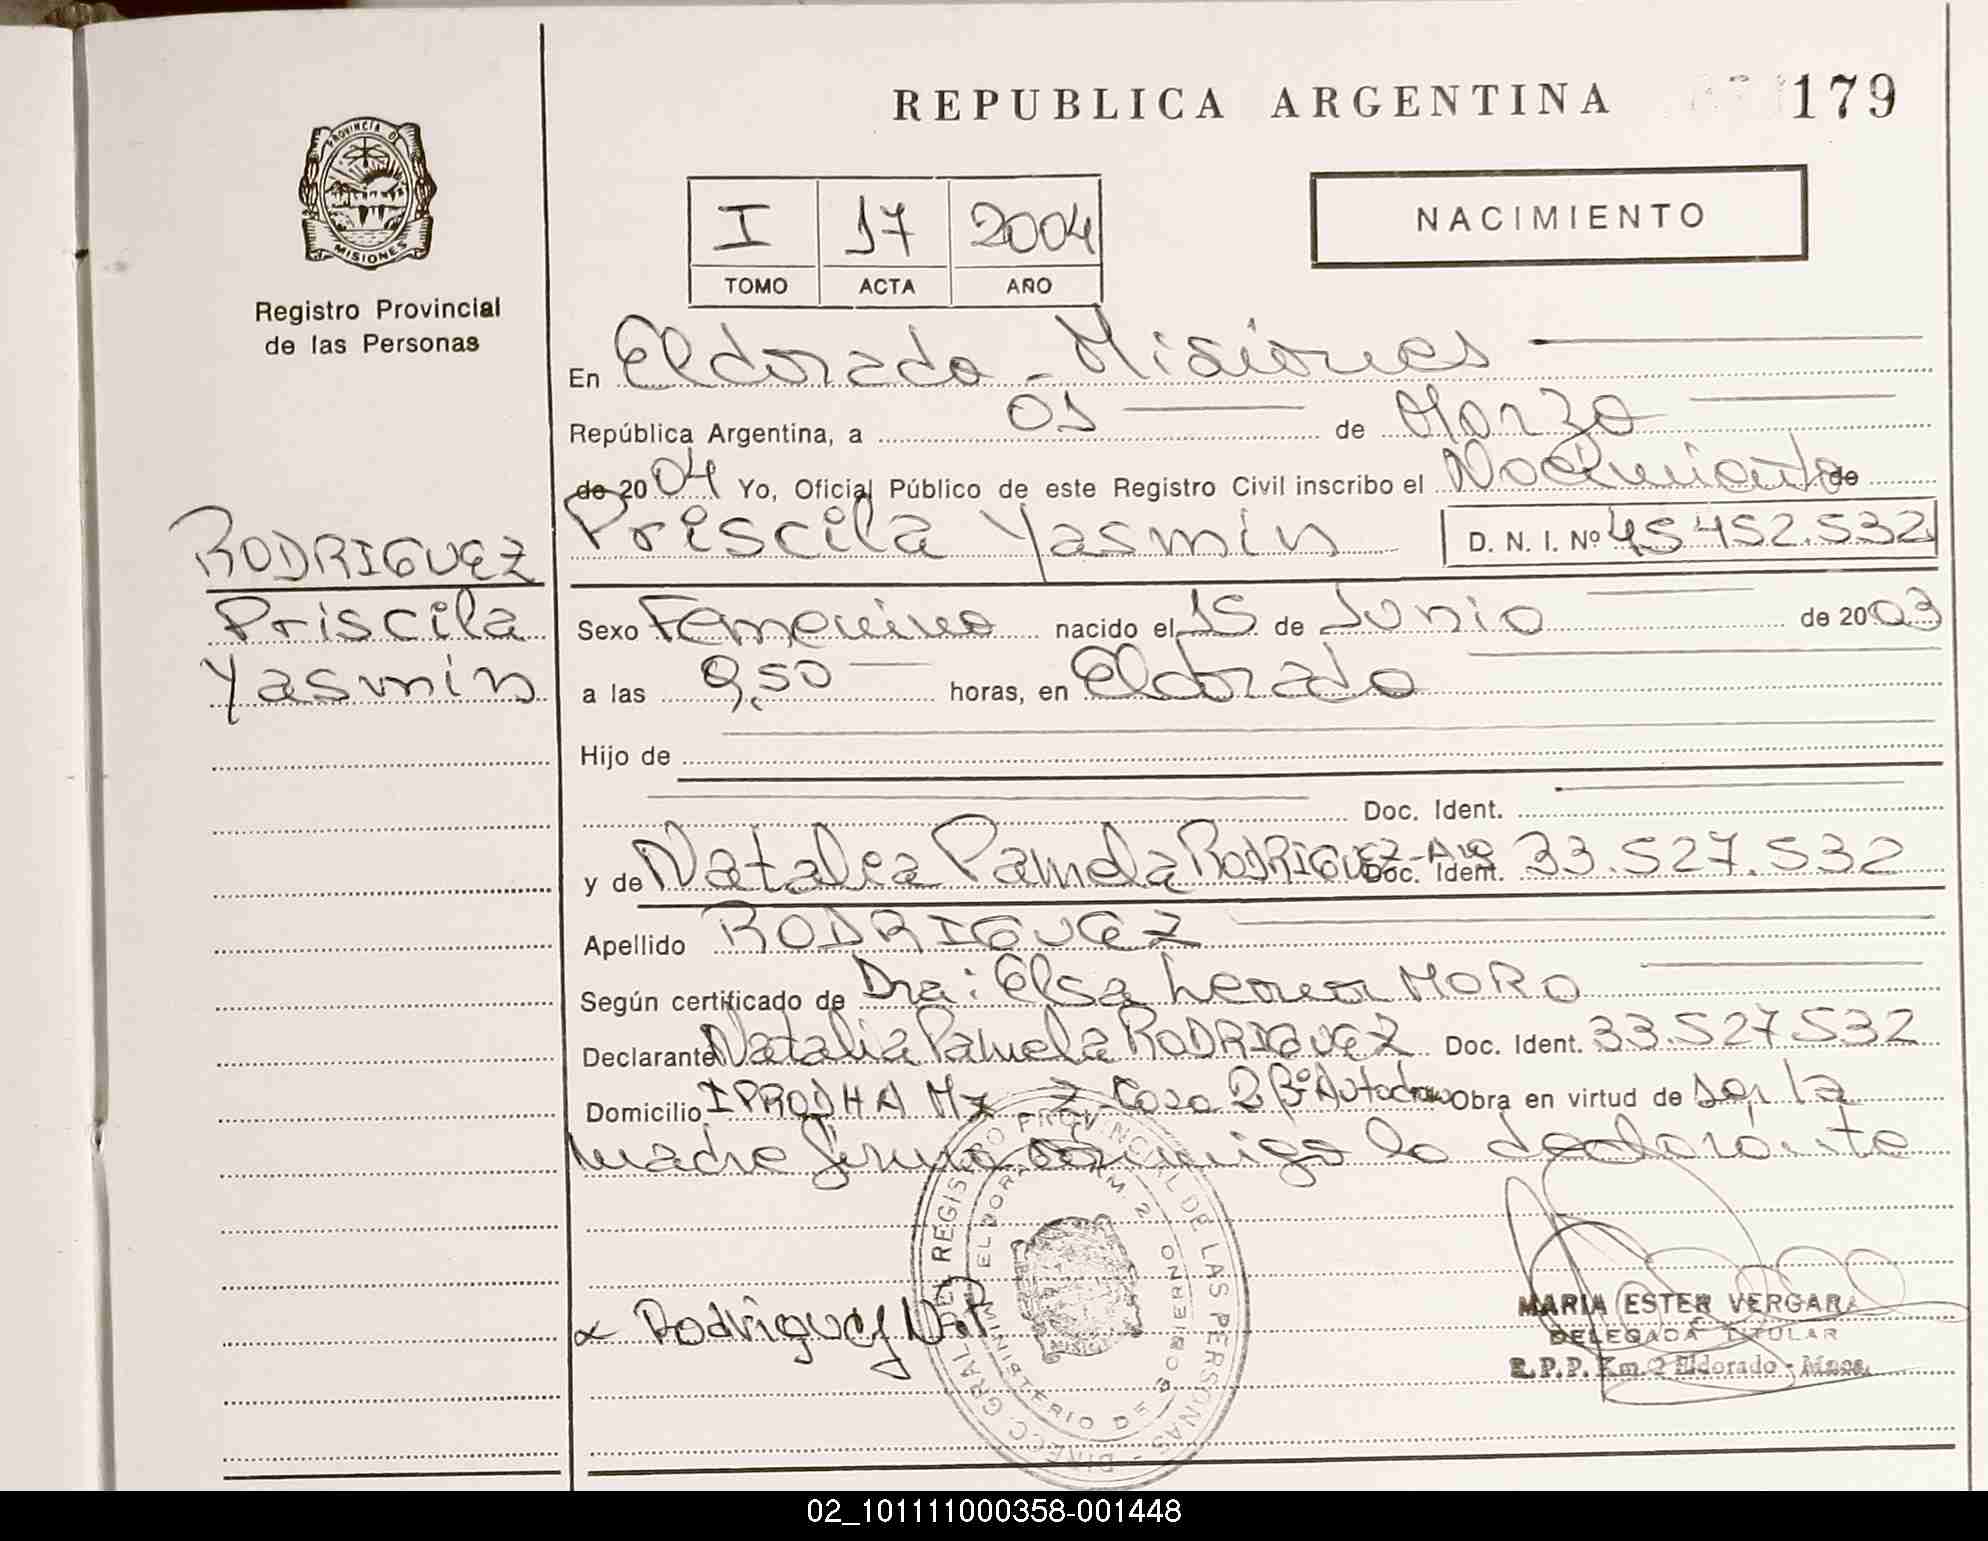 REPUBLICA ARGENTINA 179
PROVINCIA DE
MISIONES
Registro Provincial
de las Personas
I 17 2004
TOMO ACTA AÑO
NACIMIENTO
En Eldorado - Misiones
República Argentina, a 01 de Marzo
de 2004 Yo, Oficial Público de este Registro Civil inscribo el Nacimiento de
Priscila Yasmin D. N. I. Nº 45452.532
RODRIGUEZ
Priscila
Yasmin
Sexo Femenino nacido el 15 de Junio de 2003
a las 9,50 horas, en Eldorado
Hijo de
Doc. Ident.
y de Natalia Pamela RODRIGUEZ - Arg Doc. Ident. 33.527.532
Apellido RODRIGUEZ
Según certificado de Dra: Elsa Leonor MORO
Declarante Natalia Pamela RODRIGUEZ Doc. Ident. 33.527532
Domicilio IPRODHA Mz 7 Casa 2 Bº Obra en virtud de ser la
madre firma conmigo la declarante
DIRECC. GRAL. DEL REGISTRO PROVINCIAL DE LAS PERSONAS
ELDORADO KM. 2
MINISTERIO DE GOBIERNO
x Rodriguez N. P.
MARIA ESTER VERGARA
DELEGADA TITULAR
R.P.P. Km. 2 Eldorado - Mnes.
02_101111000358-001448